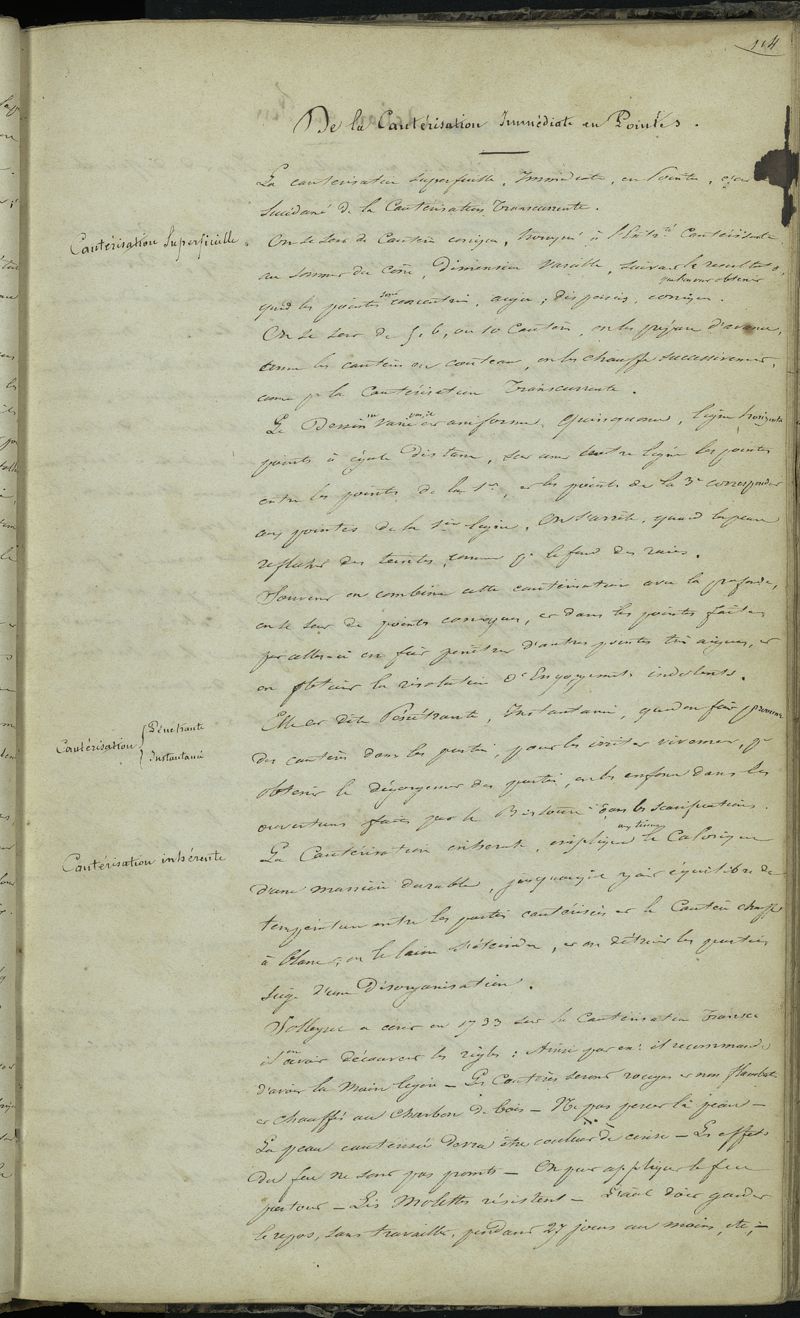 114
De la Cautérisation Immédiate en Pointes.
La cauterisation superficielle, Immediate, en Pointe, est
Succédané de la Cautérisation Transcurrente.
Cautérisation Superficielle
On se sert de Cautère conique, à Cautérisante
au sommet du Cône, Dimension Variable, suivant le resultat
que l'on veut obtenir
quand les pointes sont concentrées, aigu,
On se sert de 5, 6, ou 10 Cautères, on les prépare d'avance,
comme les cautères en couteau, on les chauffe successivement,
come pr la Cautérisation Transcurrente.
Le Dessin est uniforme, Quinquonce, ligne horizontale
points à égale distance, sur une autre ligne les points
entre les points de la 1re, et les points de la 3e correspondent
aux pointes de la 1ere ligne, On s'arrête, quand la peau
reflète des teintes, comme pr le fond des raies.
Souvent on combine cette cautérisation avec la profonde,
on se sert de points coniques, et dans les points faites
par celles-ci on fait pénétrer d'autres pointes très aigues, et
on obtient la résolution d'Engorgements indolents.
Cautérisation { Pénétrante
Instantané
Elle est dite Pénétrante, Instantané, quand on fait promene
des cautères dans les parties, pour les irriter vivement, pr
obtenir le dégorgement des parties, on les enfonce dans les
ouvertures faites par le Bistouri dans les scarifications.
Cautérisation inhérente
La Cautérisation inhérente, le Calorique
d'une manière durable, jusqu'à ce qu'il y ait équilibre de
température entre les parties cautérisées et le Cautère chauffé
à blanc; on le laisse s'éteindre, et on détruit les parties
siège d'une Désorganisation.
Solleysel a écrit en 1733 sur la Cautérisation Transce
il en avait découvert les règles: Ainsi par ex: il recommande
d'avoir la Main legère — Les Cautères seront rouges et non flambants
et chauffés au Charbon de bois — Ne pas percer la peau —
La peau cautérisée devra être couleur de cerise — Les effets
du feu ne sont pas prompts — On peut appliquer le feu
partout — Les Molettes résistent — garder
le repos, sans travailler, pendant 27 jours au moins, etc, —